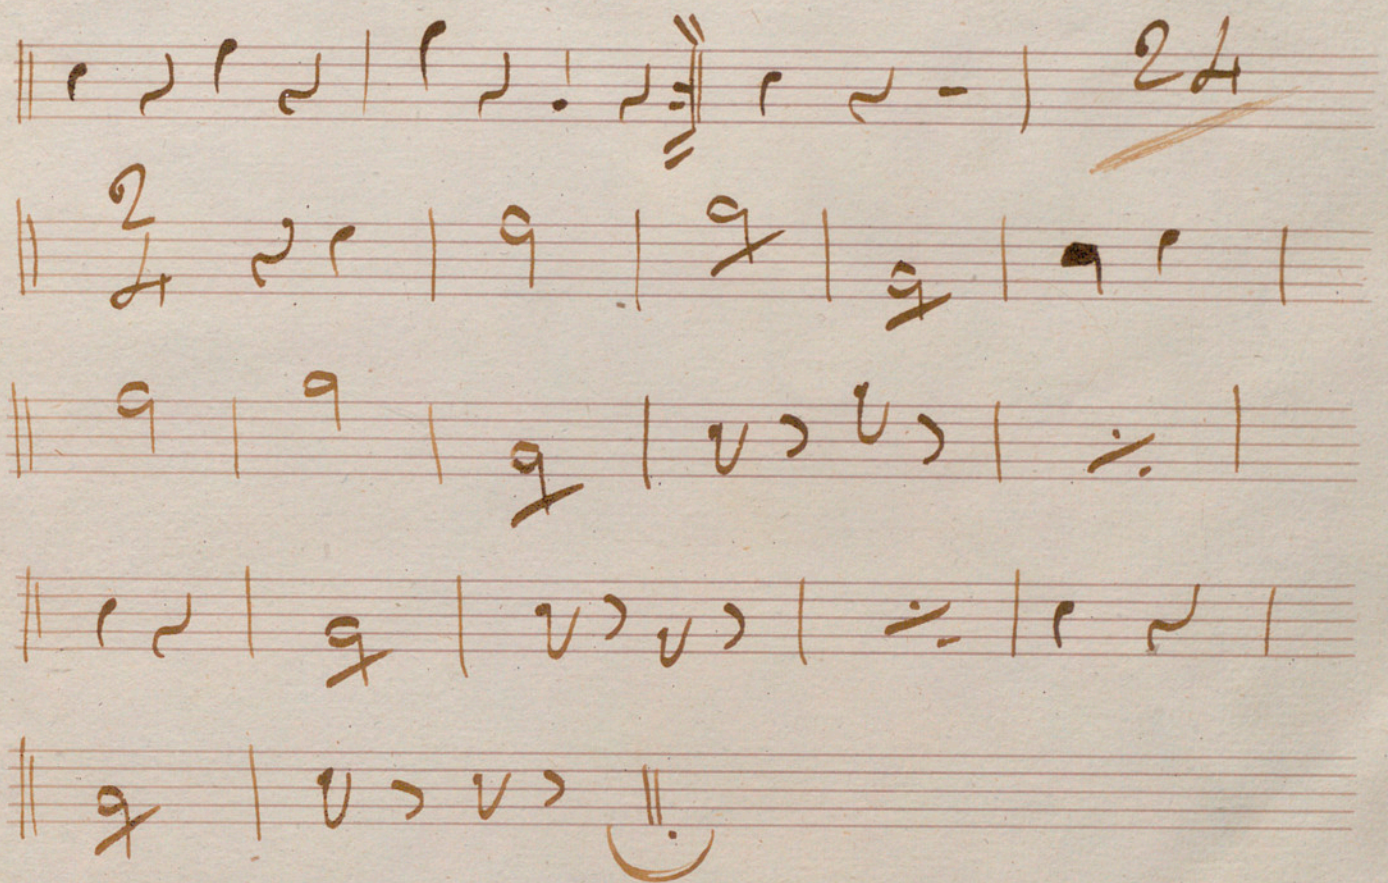 24
2
4